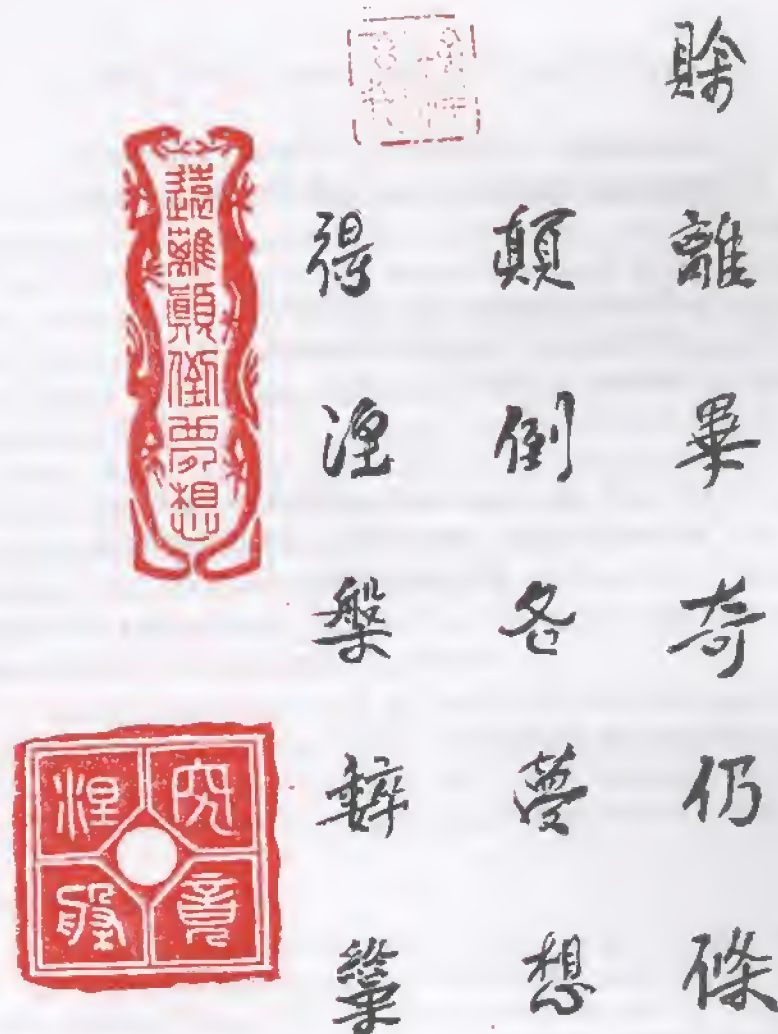 賖離畢奇仍條
顛倒各夢想
得涅槃
遠離顛倒夢想
究竟
涅槃